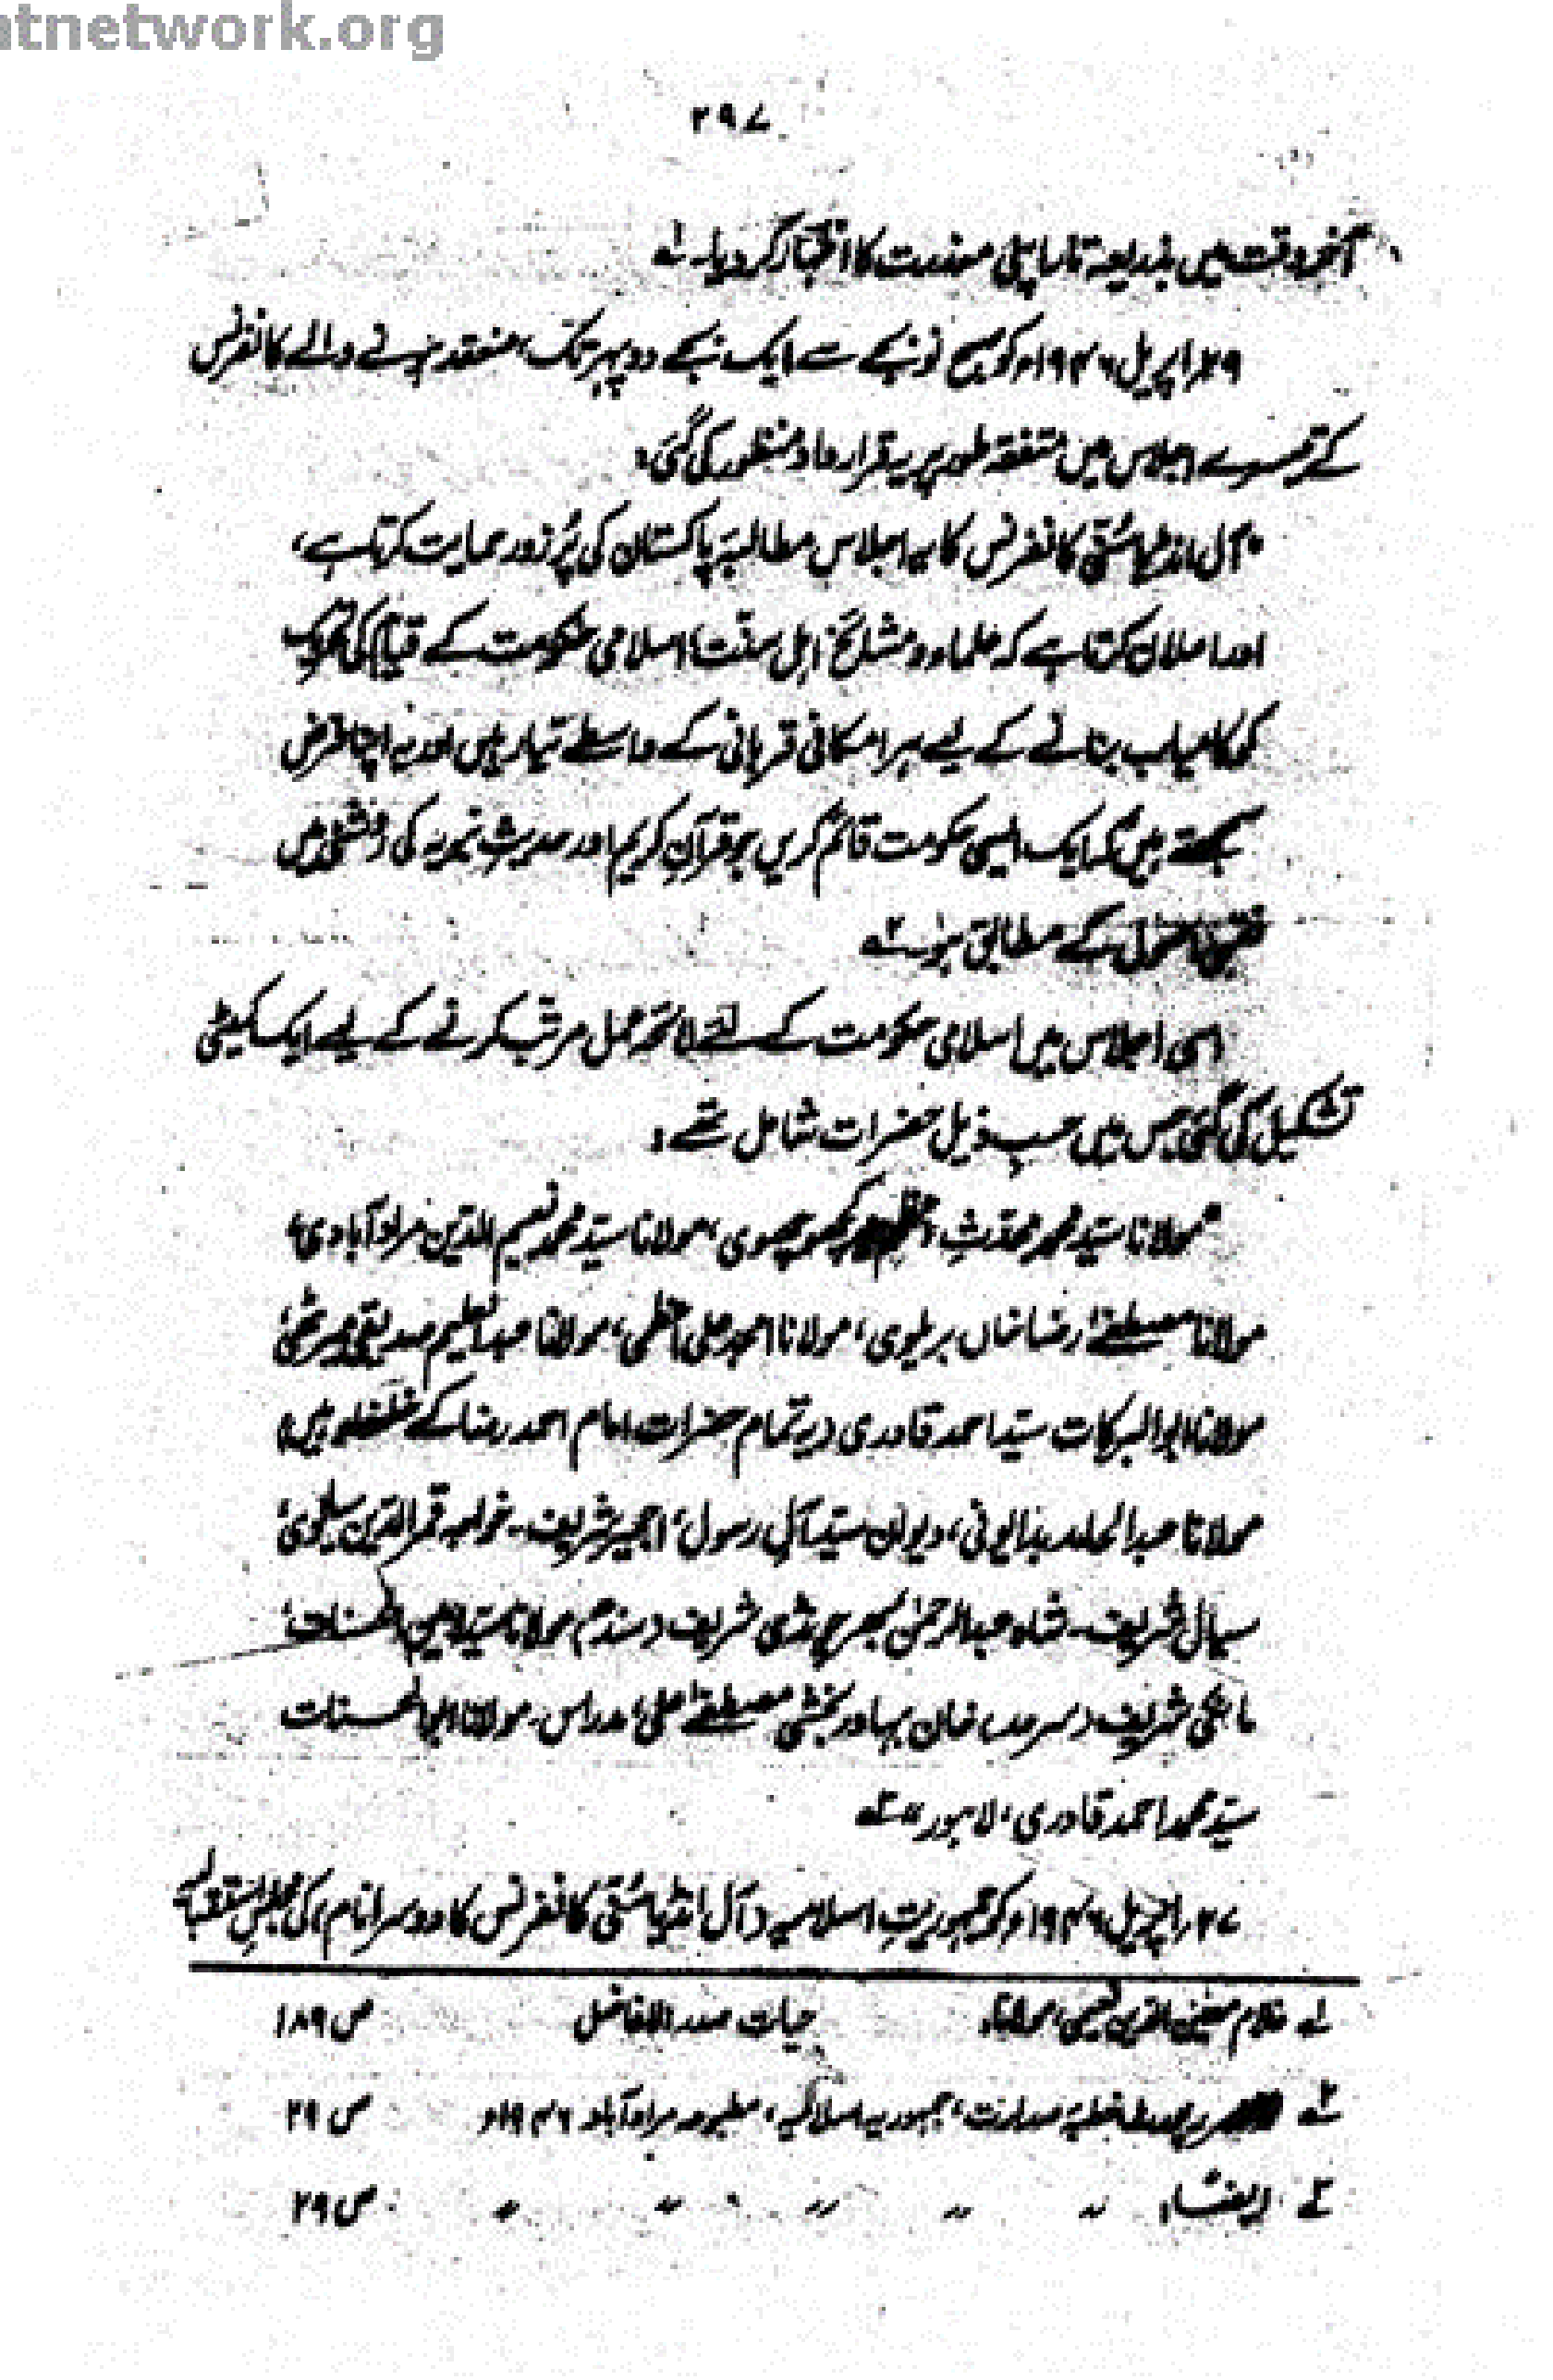 ntnetwork.org
۲۹۷
آخر وقت میں بذریعہ تار اپنی معذرت کا اظہار کر دیا۔ لہ
۲۹ اپریل ۱۹۴۶ء کو صبح نو بجے سے ایک بجے دوپہر تک منعقد ہونے والے کانفرنس
کے تیسرے اجلاس میں متفقہ طور پر یہ قرارداد منظور کی گئی:
"آل انڈیا سُنّی کانفرنس کا یہ اجلاس مطالبۂ پاکستان کی پُرزور حمایت کرتا ہے،
اور اعلان کرتا ہے کہ علماء و مشائخ اہل سنت، اسلامی حکومت کے قیام کی تحریک
کو کامیاب بنانے کے لیے ہر امکانی قربانی کے واسطے تیار ہیں اور یہ اپنا فرض
سمجھتے ہیں کہ ایک ایسی حکومت قائم کریں جو قرآنِ کریم اور حدیثِ نبویہ کی روشنی میں
فقہی اصول کے مطابق ہو۔ ۲ہ
اسی اجلاس میں اسلامی حکومت کے لئے لائحہ عمل مرتب کرنے کے لیے ایک کمیٹی
تشکیل کی گئی جس میں حسبِ ذیل حضرات شامل تھے:
"مولانا سیّد محمد محدّثِ کچھوچھوی، مولانا سیّد محمد نعیم الدّین مراد آبادی،
مولانا مصطفےٰ رضا خاں بریلوی، مولانا امجد علی اعظمی، مولانا عبدالعلیم صدیقی میرٹھی،
مولانا ابوالبرکات سیّد احمد قادری (یہ تمام حضرات امام احمد رضا کے خلفاء ہیں)
مولانا عبدالحامد بدایونی، دیوان سیّد آلِ رسول، اجمیر شریف۔ خواجہ قمر الدّین سیالوی،
سیال شریف۔ شاہ عبدالرحمٰن بھرچونڈی شریف (سندھ) مولانا سیّد امین الحسنات،
مانکی شریف (سرحد) خان بہادر بخشی مصطفےٰ علی، مدراس۔ مولانا ابوالحسنات
سیّد محمد احمد قادری، لاہور" ۳ہ
۲۷ اپریل ۱۹۴۶ء کو جمہوریتِ اسلامیہ (آل انڈیا سُنّی کانفرنس کا دوسرا نام) کی مجلسِ استقبالیہ
لہ غلام معین الدین نعیمی، مولانا حیات صدر الافاضل ص ۱۸۹
۲ہ خطبۂ صدارت، جمہوریہ اسلامیہ، مطبوعہ مراد آباد ۱۹۴۶ء ص ۲۹
۳ہ ایضاً " " " " " ص ۲۹